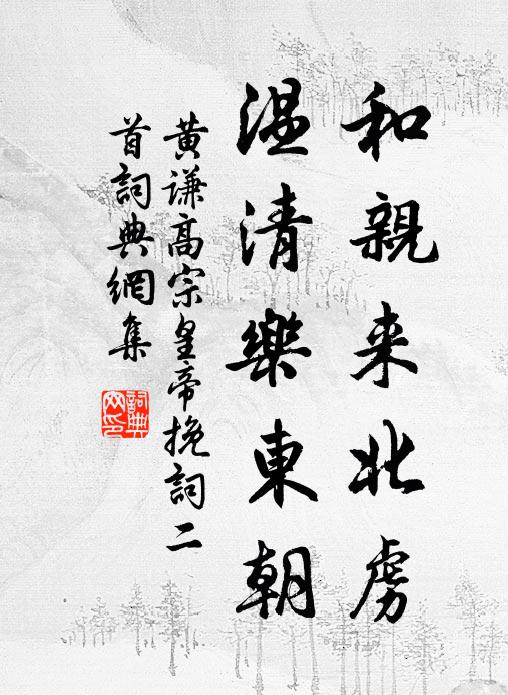 和親来北虏
温清樂東朝
黄谦高宗皇帝挽詞二
首詞典網集
詞典
网印